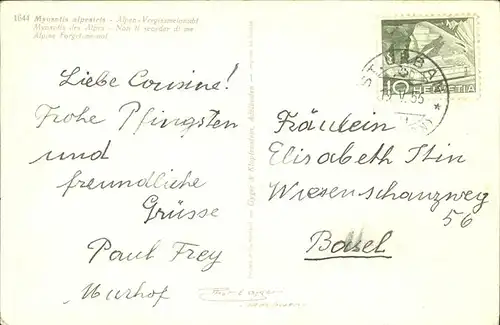 1644 Myosotis alpestris - Alpen-Vergissmeinnicht
Myosotis des Alpes - Non ti scordar di me
Alpine Forget-me-not
Liebe Cousine!
Frohe Pfingsten
und
freundliche
Grüsse
Paul Frey
Murhof
HELVETIA
10
V. 55
Fräulein
Elisabeth Itin
Wiesenschanzweg
56
Basel